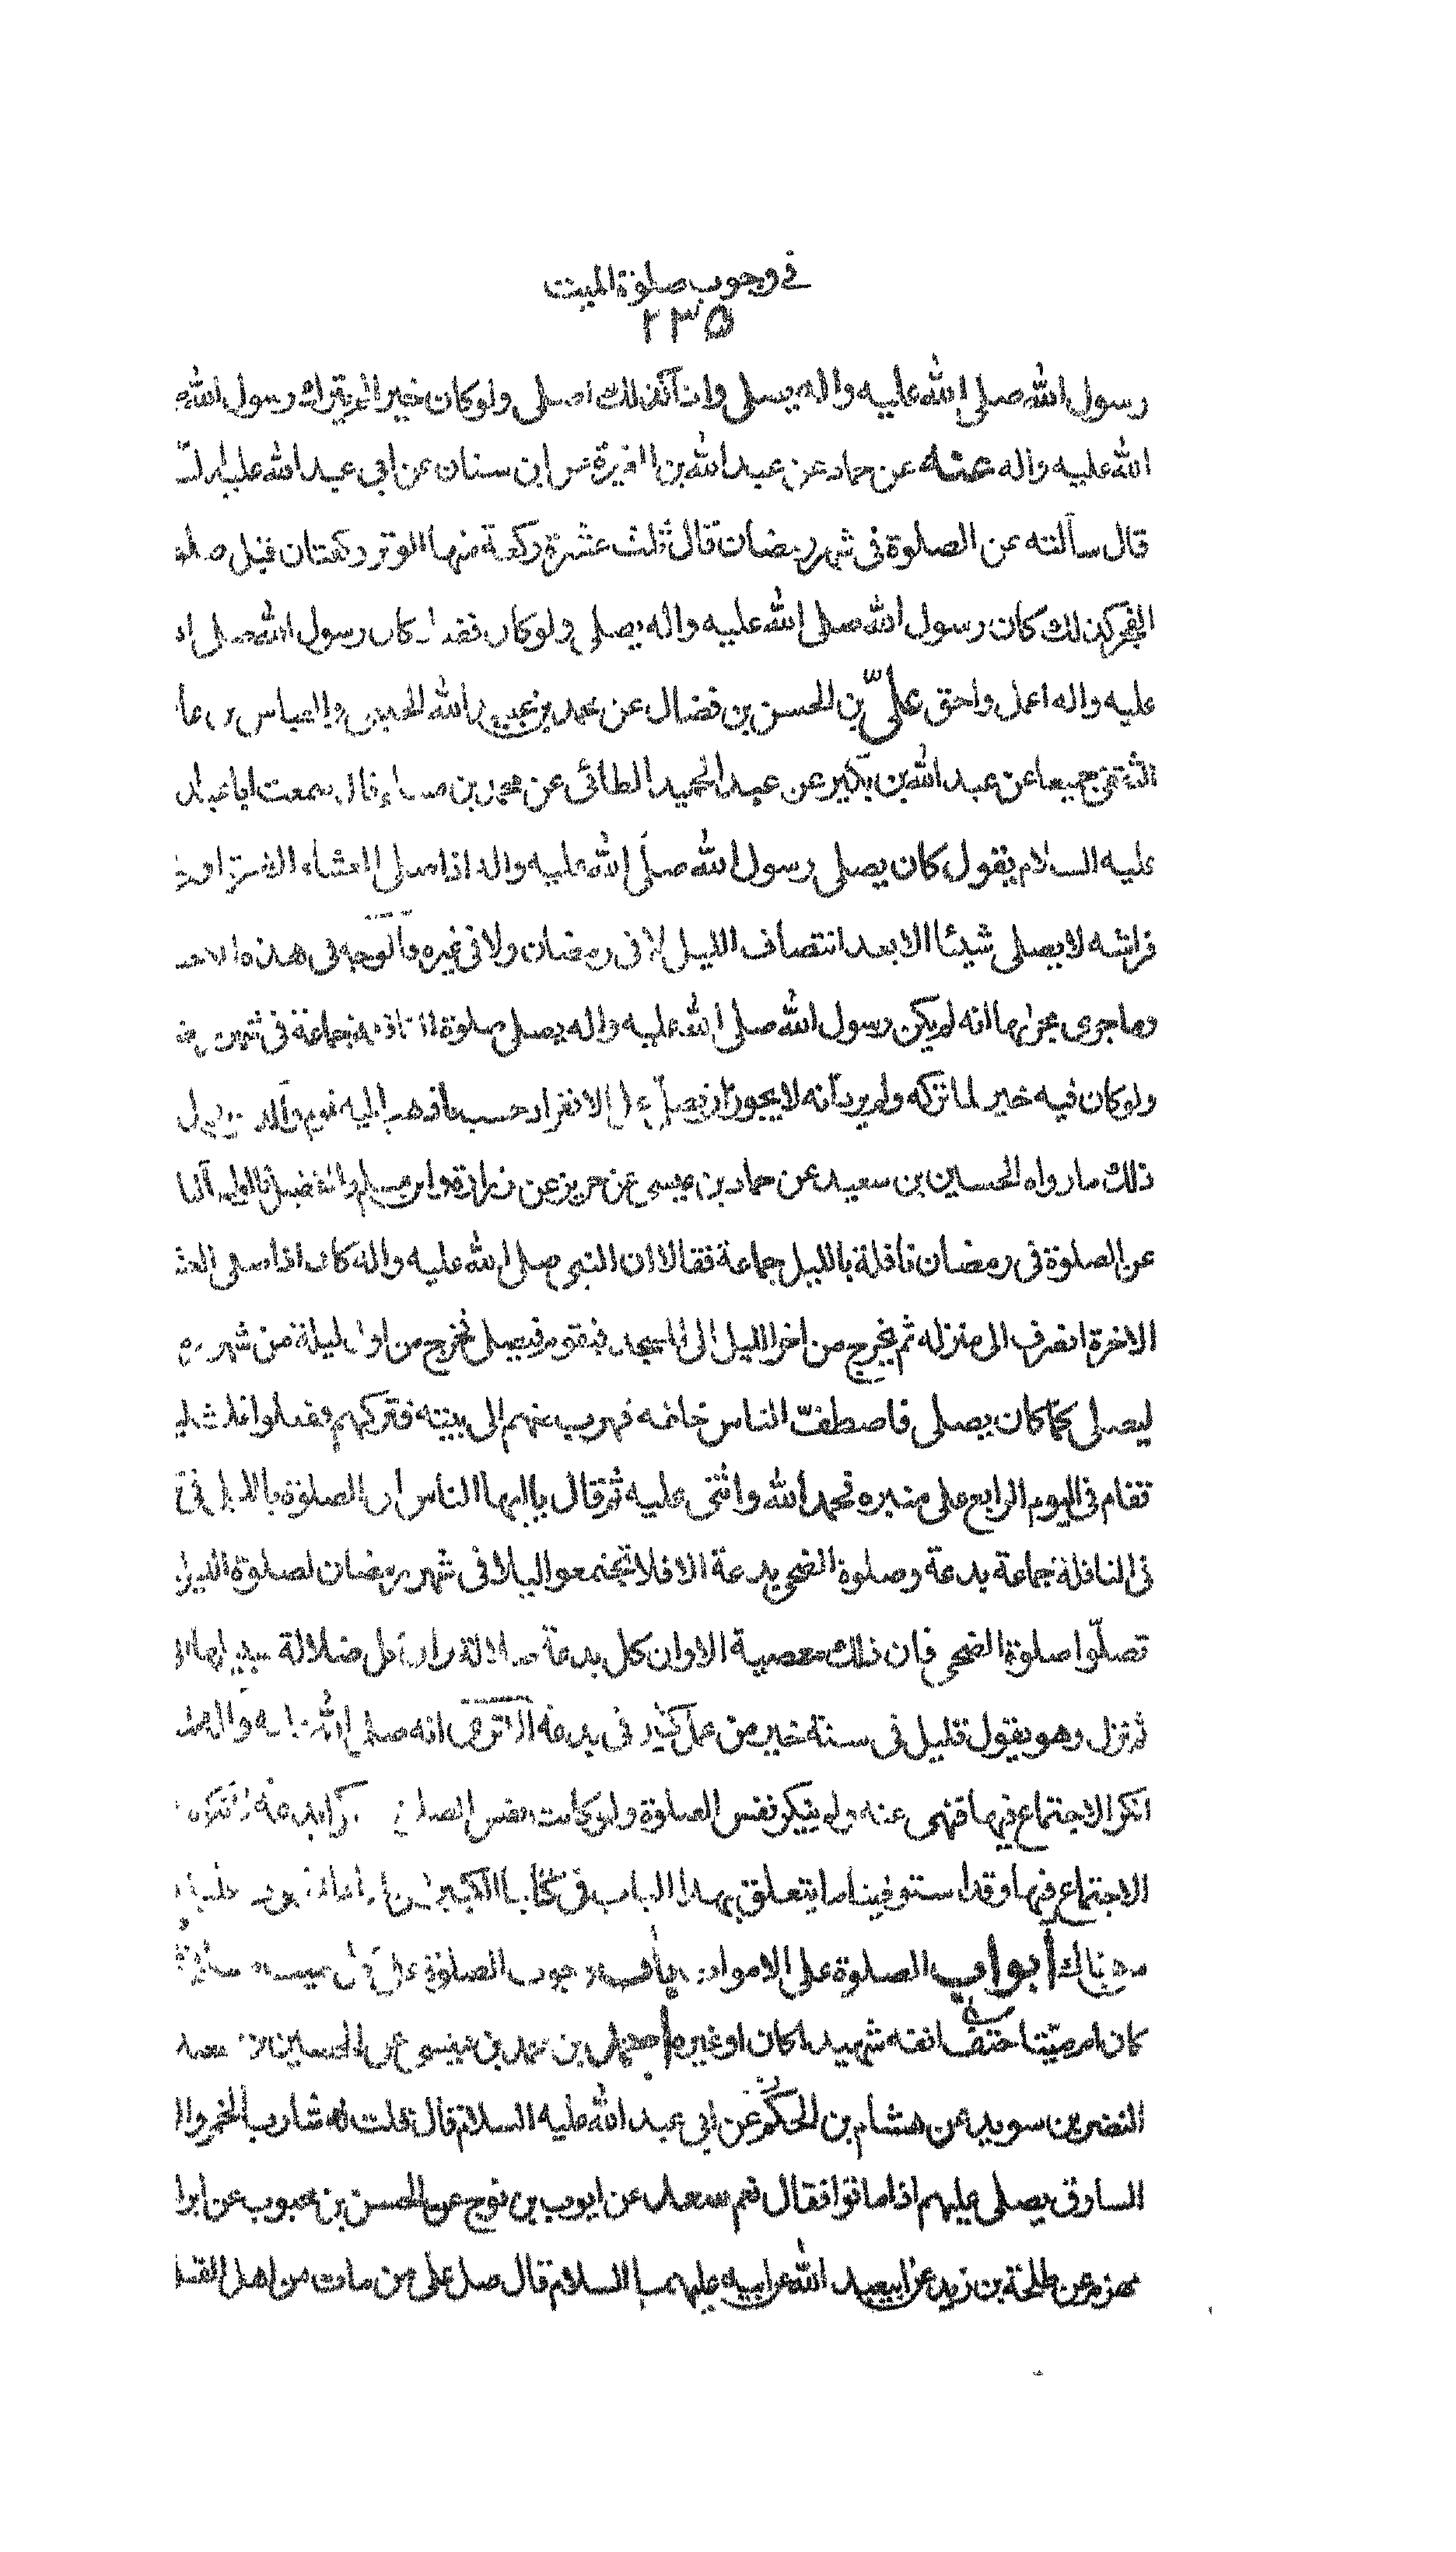 في وجوب صلوة الميت
٢٣٥
رسول الله صلى الله عليه واله يصلى وانا كذلك اصلى ولو كان خيرا لم يترك رسول الله ص
الله عليه واله عنه عن حماد عن عبد الله بن المغيرة عن ابن سنان عن ابي عبد الله عليه
قال سألته عن الصلوة فى شهر رمضان قال ثلث عشرة ركعة منها الوتر وركعتان قبل صلو
الفجر كذلك كان رسول الله صلى الله عليه واله يصلى ولو كان فضلا كان رسول الله صلى ا
عليه واله اعمل واحق علىّ بن الحسن بن فضال عن محمد بن عبيد الله الحلبى والعباس بن عا
الثقفى جميعا عن عبد الله بن بكير عن عبد الحميد الطائى عن محمد بن مسلم قال سمعت ابا عبد
عليه السلام يقول كان يصلى رسول الله صلّى الله عليه واله اذا صلى العشاء الاخرة اوى
فراشه لا يصلى شيئا الا بعد انتصاف الليل لا فى رمضان ولا فى غيره فالوجه فى هذه الاخ
وما جرى مجراها انه لم يكن رسول الله صلى الله عليه واله يصلى صلوة النافلة جماعة فى شهر
ولو كان فيه خير لما تركه ولم يرد انه لا يجوز ان يصلى على الانفراد حسب ما ذهب اليه قوم والذى يدل
ذلك ما رواه الحسين بن سعيد عن حماد بن عيسى عن حريز عن زرارة وابن مسلم والفضيل قالوا سألنا
عن الصلوة فى رمضان نافلة بالليل جماعة فقالا ان النبى صلى الله عليه واله كان اذا صلى العش
الاخرة انصرف الى منزله ثم يخرج من اخر الليل الى المسجد فيقوم فيصلى فخرج من اول ليلة من شهر رم
ليصلى كما كان يصلى فاصطفّ الناس خلفه فهرب منهم الى بيته فتركهم ففعلوا ذلك ثلث
فقام فى اليوم الرابع على منبره فحمد الله واثنى عليه ثم قال يا ايها الناس ان الصلوة بالليل فى
فى النافلة جماعة بدعة وصلوة الضحى بدعة الا فلا تجتمعوا ليلا فى شهر رمضان لصلوة الليل
تصلّوا صلوة الضحى فان ذلك معصية الا وان كل بدعة ضلالة وان كل ضلالة سبيلها ا
ثم نزل وهو يقول قليل فى سنة خير من عمل كثير فى بدعة الا ترى انه صلى الله عليه واله
انكر الاجتماع فيها فنهى عنه ولم ينكر نفس الصلوة ولو كانت نفس الصلوة
الاجتماع فيها وقد استوفينا ما يتعلق بهذا الباب فى كتابنا الكبير
من هناك ابواب الصلوة على الاموات باب وجوب الصلوة على كل ميت
كان او ميّتا حتف انفه شهيدا كان او غيره احمد بن محمد بن عيسى عن الحسين بن سعيد
النضر بن سويد عن هشام بن الحكم عن ابى عبد الله عليه السلام قال قلت له شارب الخمر وال
السارق يصلى عليهم اذا ماتوا فقال نعم سعد عن ايوب بن نوح عن الحسن بن محبوب عن ابرا
مهزم عن طلحة بن زيد عن ابيعبد الله عن ابيه عليهما السلام قال صل على من مات من اهل القبل